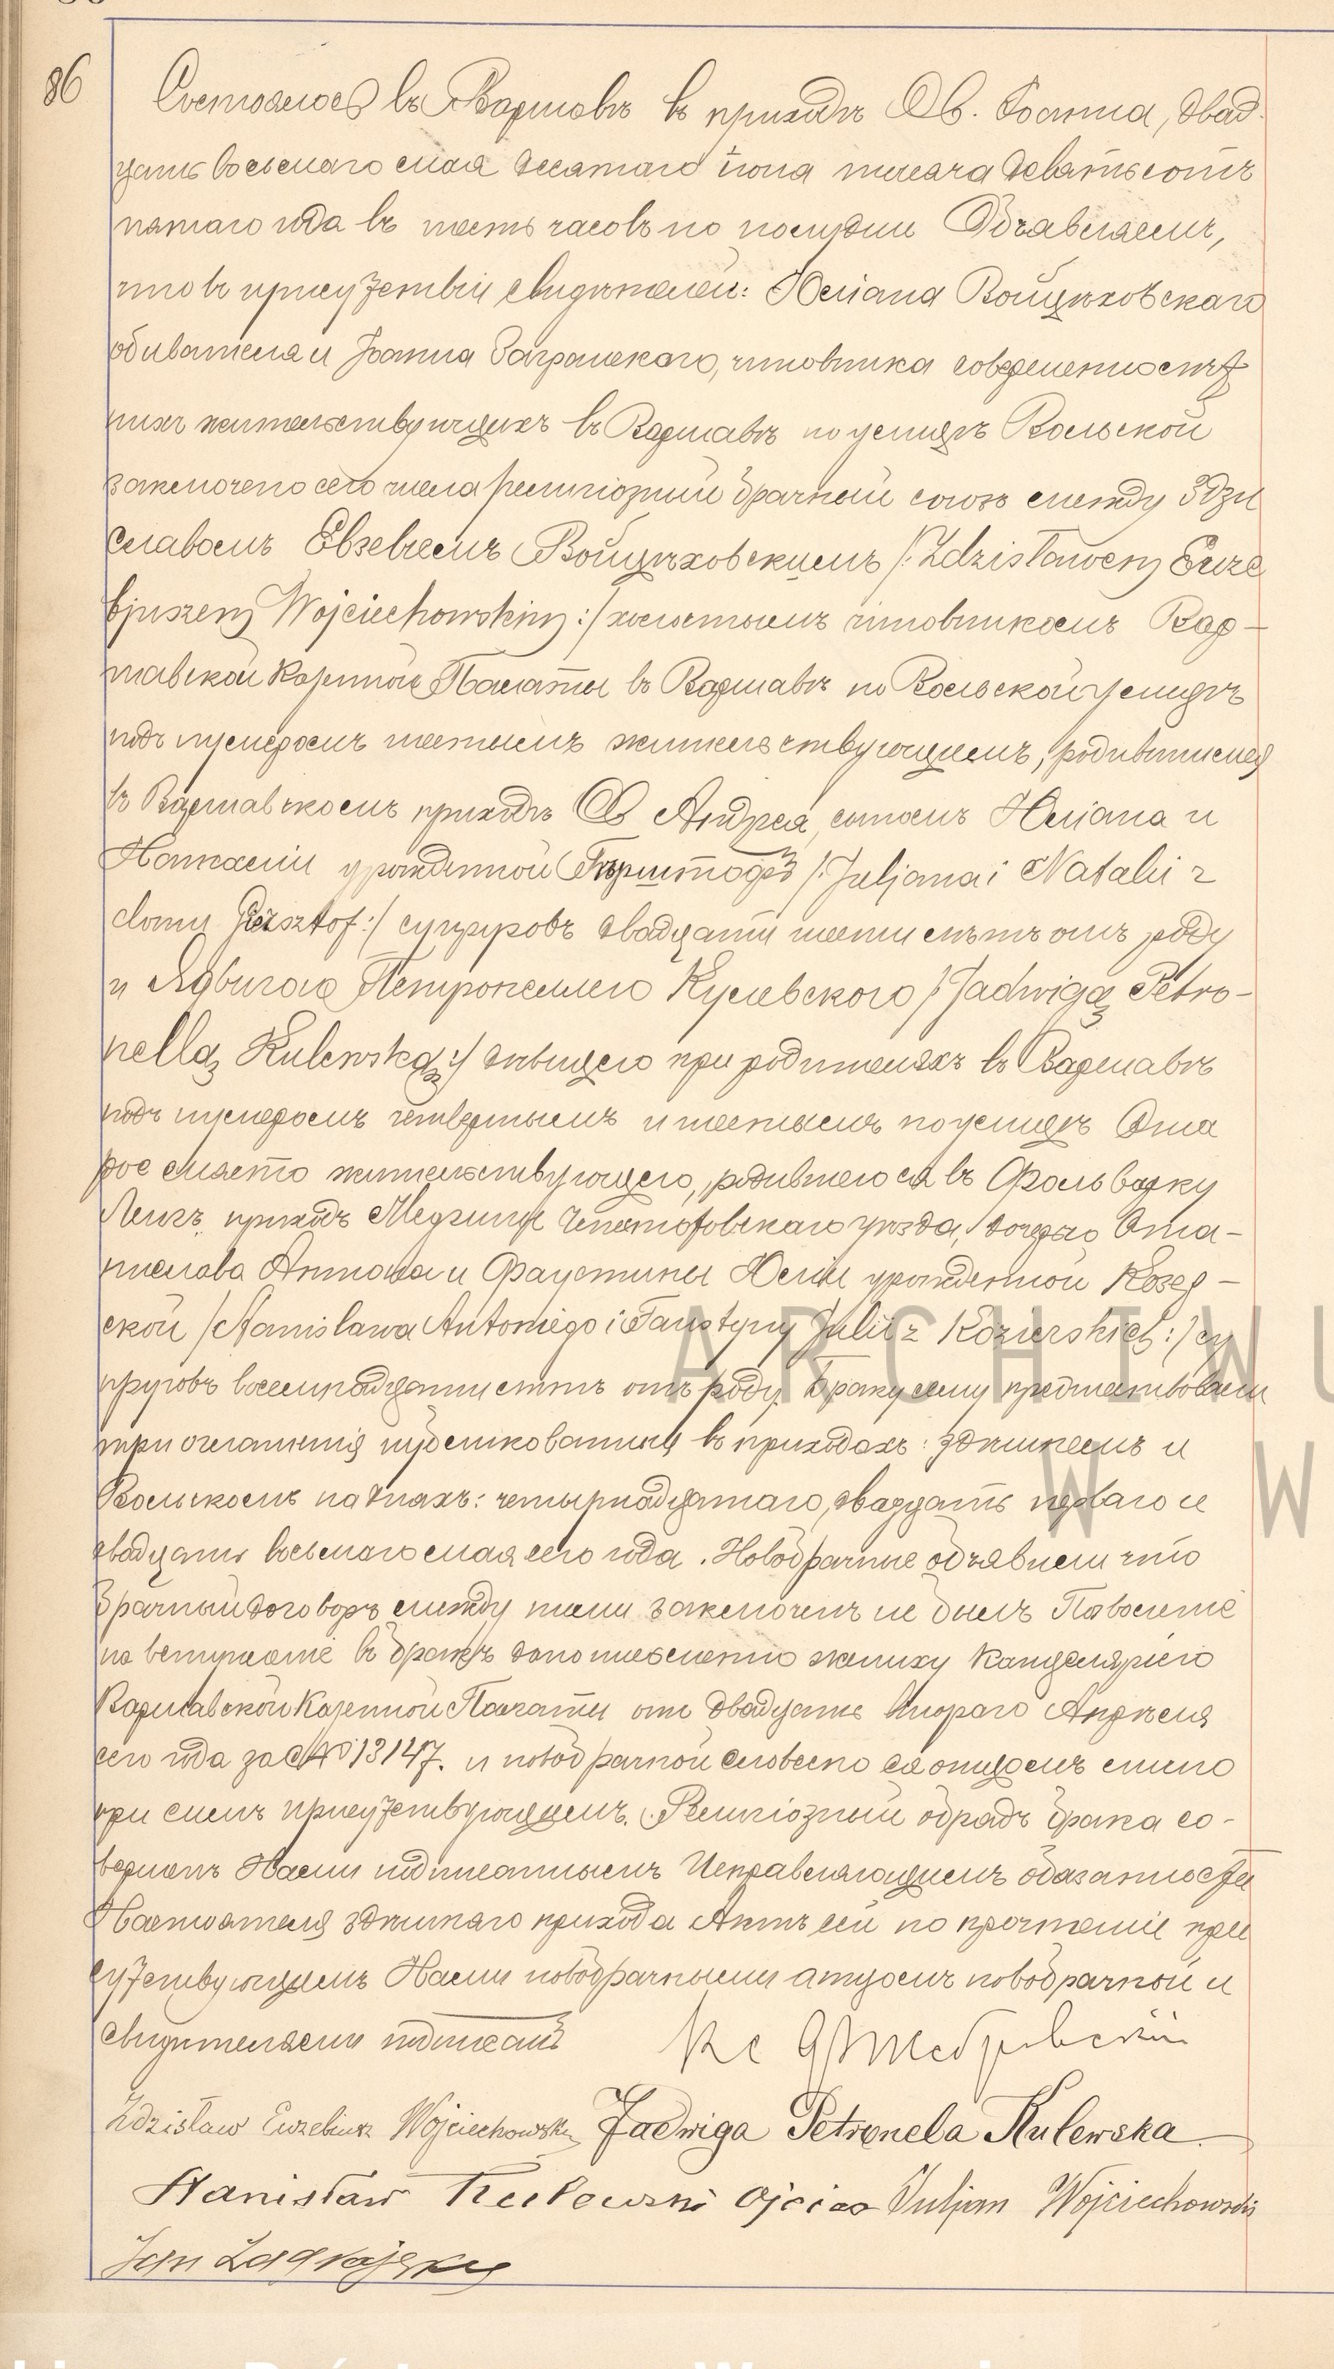 86
Состоялось въ Варшавѣ въ приходѣ Св. Іоанна, двад-
цать восьмаго мая десятаго іюня тысяча девятьсотъ
пятаго года въ шесть часовъ по полудни Объявляемъ,
что въ присутствіи свидѣтелей: Юліана Войцѣховскаго
обывателя и Іоанна Заграйскаго, чиновника совершеннолѣт
нихъ жительствующихъ въ Варшавѣ по улицѣ Вольской
заключено сего числа религіозный брачный союзъ между Здзи
славомъ Евзебіемъ Войцѣховскимъ /:Zdzisławem Euze
bjuszem Wojciechowskim:/ холостымъ чиновникомъ Вар-
шавской Казенной Палаты въ Варшавѣ по Вольской улицѣ
подъ нумеромъ шестымъ жительствующимъ, родившимся
въ Варшавскомъ приходѣ Св Андрея, сыномъ Юліана и
Наталіи урожденной /:Juljana i Natalii z
domu Giersztof:/ супруговъ двадцати шести лѣтъ отъ роду
и Ядвигою Петронеллею Кулевскою /:Jadwigą Petro-
nellą Kulewską:/ дѣвицею при родителяхъ въ Варшавѣ
подъ нумеромъ четвертымъ и шестымъ по улицѣ Ста
рое място жительствующею, родившеюся въ Фольварку
приходѣ уѣзда, дочерью Ста-
нислава Антонія и Фаустины Юліи урожденной Козер-
ской /Stanisława Antoniego i Faustyny Julii z Kozierskich:/ су
пруговъ восемнадцати лѣтъ отъ роду. Браку сему предшествовали
три оглашенія публикованныя въ приходахъ: здѣшнемъ и
Вольскомъ на дняхъ: четырнадцатаго, двадцать перваго и
двадцать восьмаго мая сего года. Новобрачные объявили что
брачный договоръ между ними заключенъ не былъ Позволеніе
на вступленіе въ бракъ дано письменно жениху Канцеляріею
Варшавской Казенной Палаты отъ двадцать втораго Апрѣля
сего года за № 13147. и новобрачной словесно ея отцомъ лично
при семъ присутствующимъ. Религіозный обрядъ брака со-
вершенъ Нами нижеподписаннымъ Исправляющимъ обязанности
Настоятеля здѣшняго прихода Актъ сей по прочтеніи при
сутствующимъ Нами новобрачными отцомъ новобрачной и
свидѣтелями подписанъ
Кс
Zdzisław Euzebiusz Wojciechowski Jadwiga Petronela Kulewska
Stanisław Kulewski ojciec Juljan Wojciechowski
Jan Zagrajski
ARCHIWU
W W